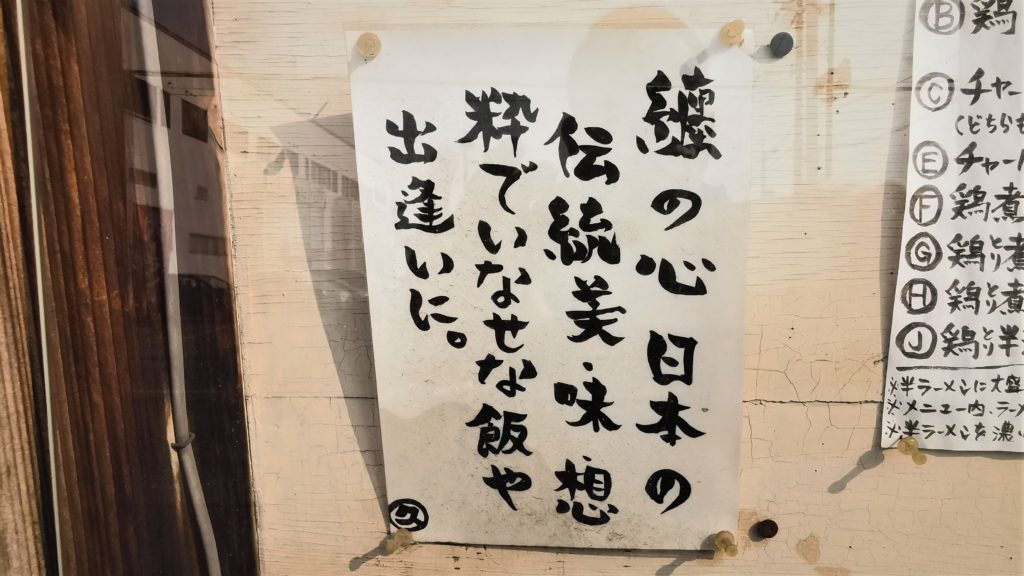 纏の心 日本の
伝統美・味 想
粋でいなせな飯や
出逢いに。
Ⓑ鶏
Ⓒチャー
(どちらも
Ⓔチャー
Ⓕ鶏煮
Ⓖ鶏とり煮
Ⓗ鶏とり煮
Ⓙ鶏とり半
※半ラーメンに大盛
※メニュー内、ラーメ
※半ラーメンを濃い